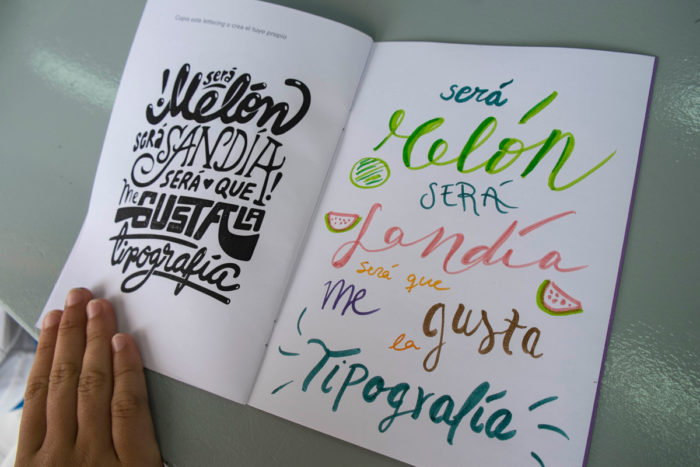 Copia este lettering o crea el tuyo propio
¡será
Melón
será SANDÍA
SERÁ ♥ QUE !
Me GUSTA LA
tipografía
será
Melón
SERÁ
Sandía
será que
me gusta
la
Tipografía